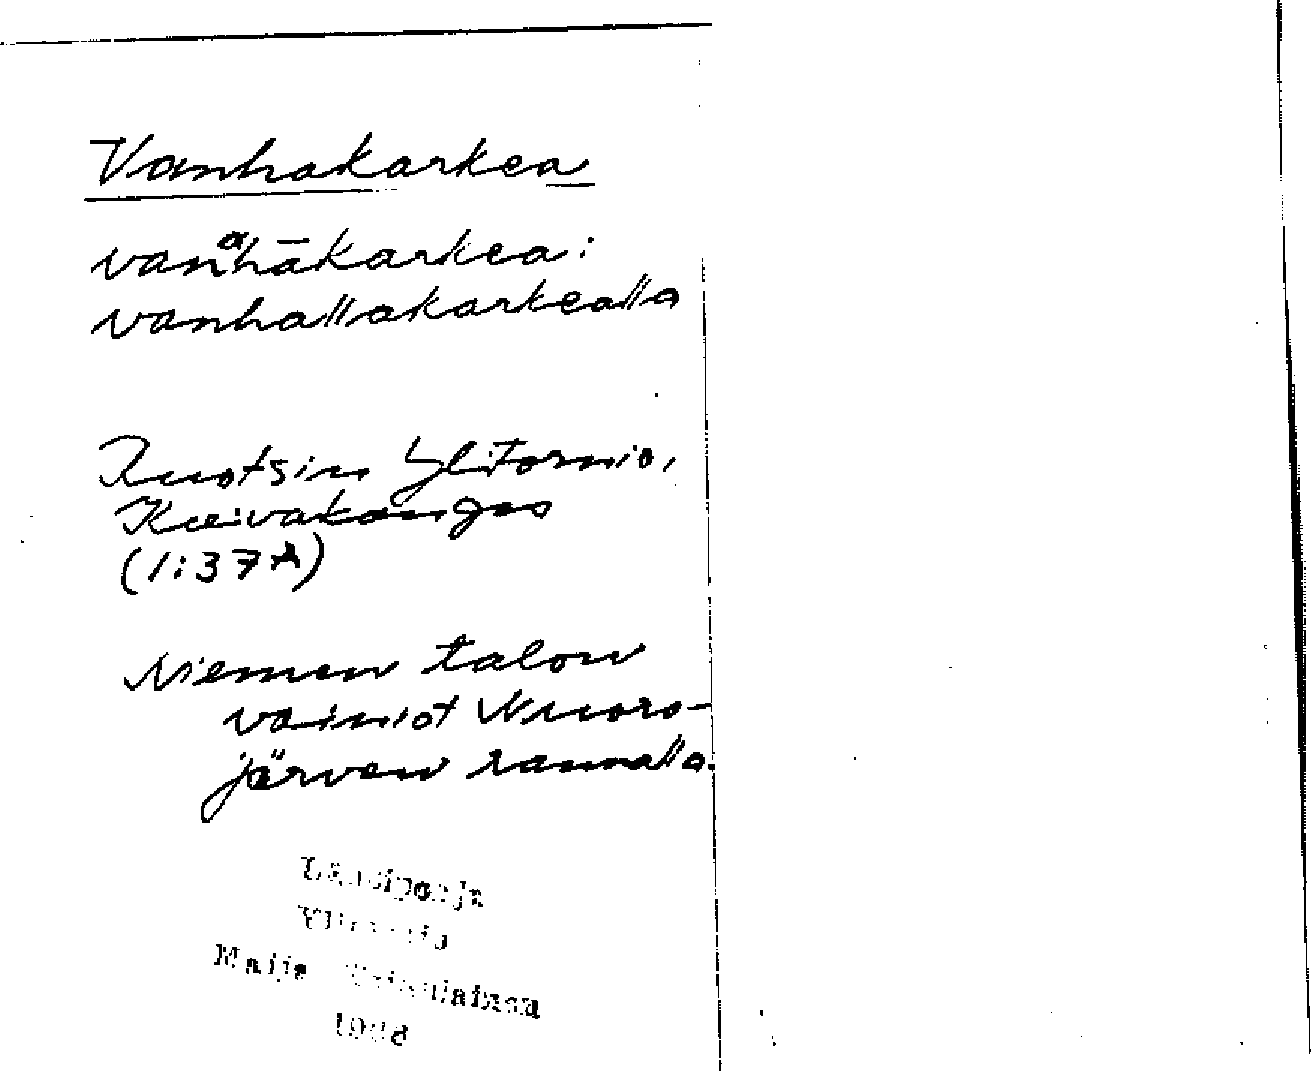 Vanhakarkea
vanᵃhākarkea:
vanhallakarkealla
Ruotsin Ylitornio,
Kuivakangas
(1:37A)
Niemen talon
vainiot Nuoro-
järven rannalla.
Länsipohja
Ylitornio
Maija